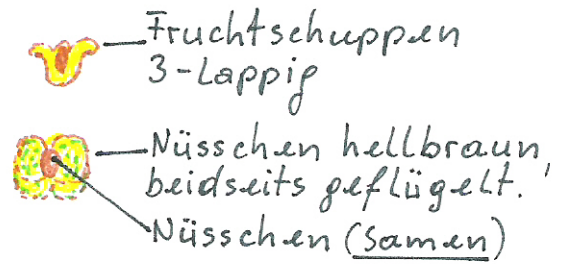 Fruchtschuppen
3-Lappig
Nüsschen hellbraun,
beidseits geflügelt.
Nüsschen (Samen)